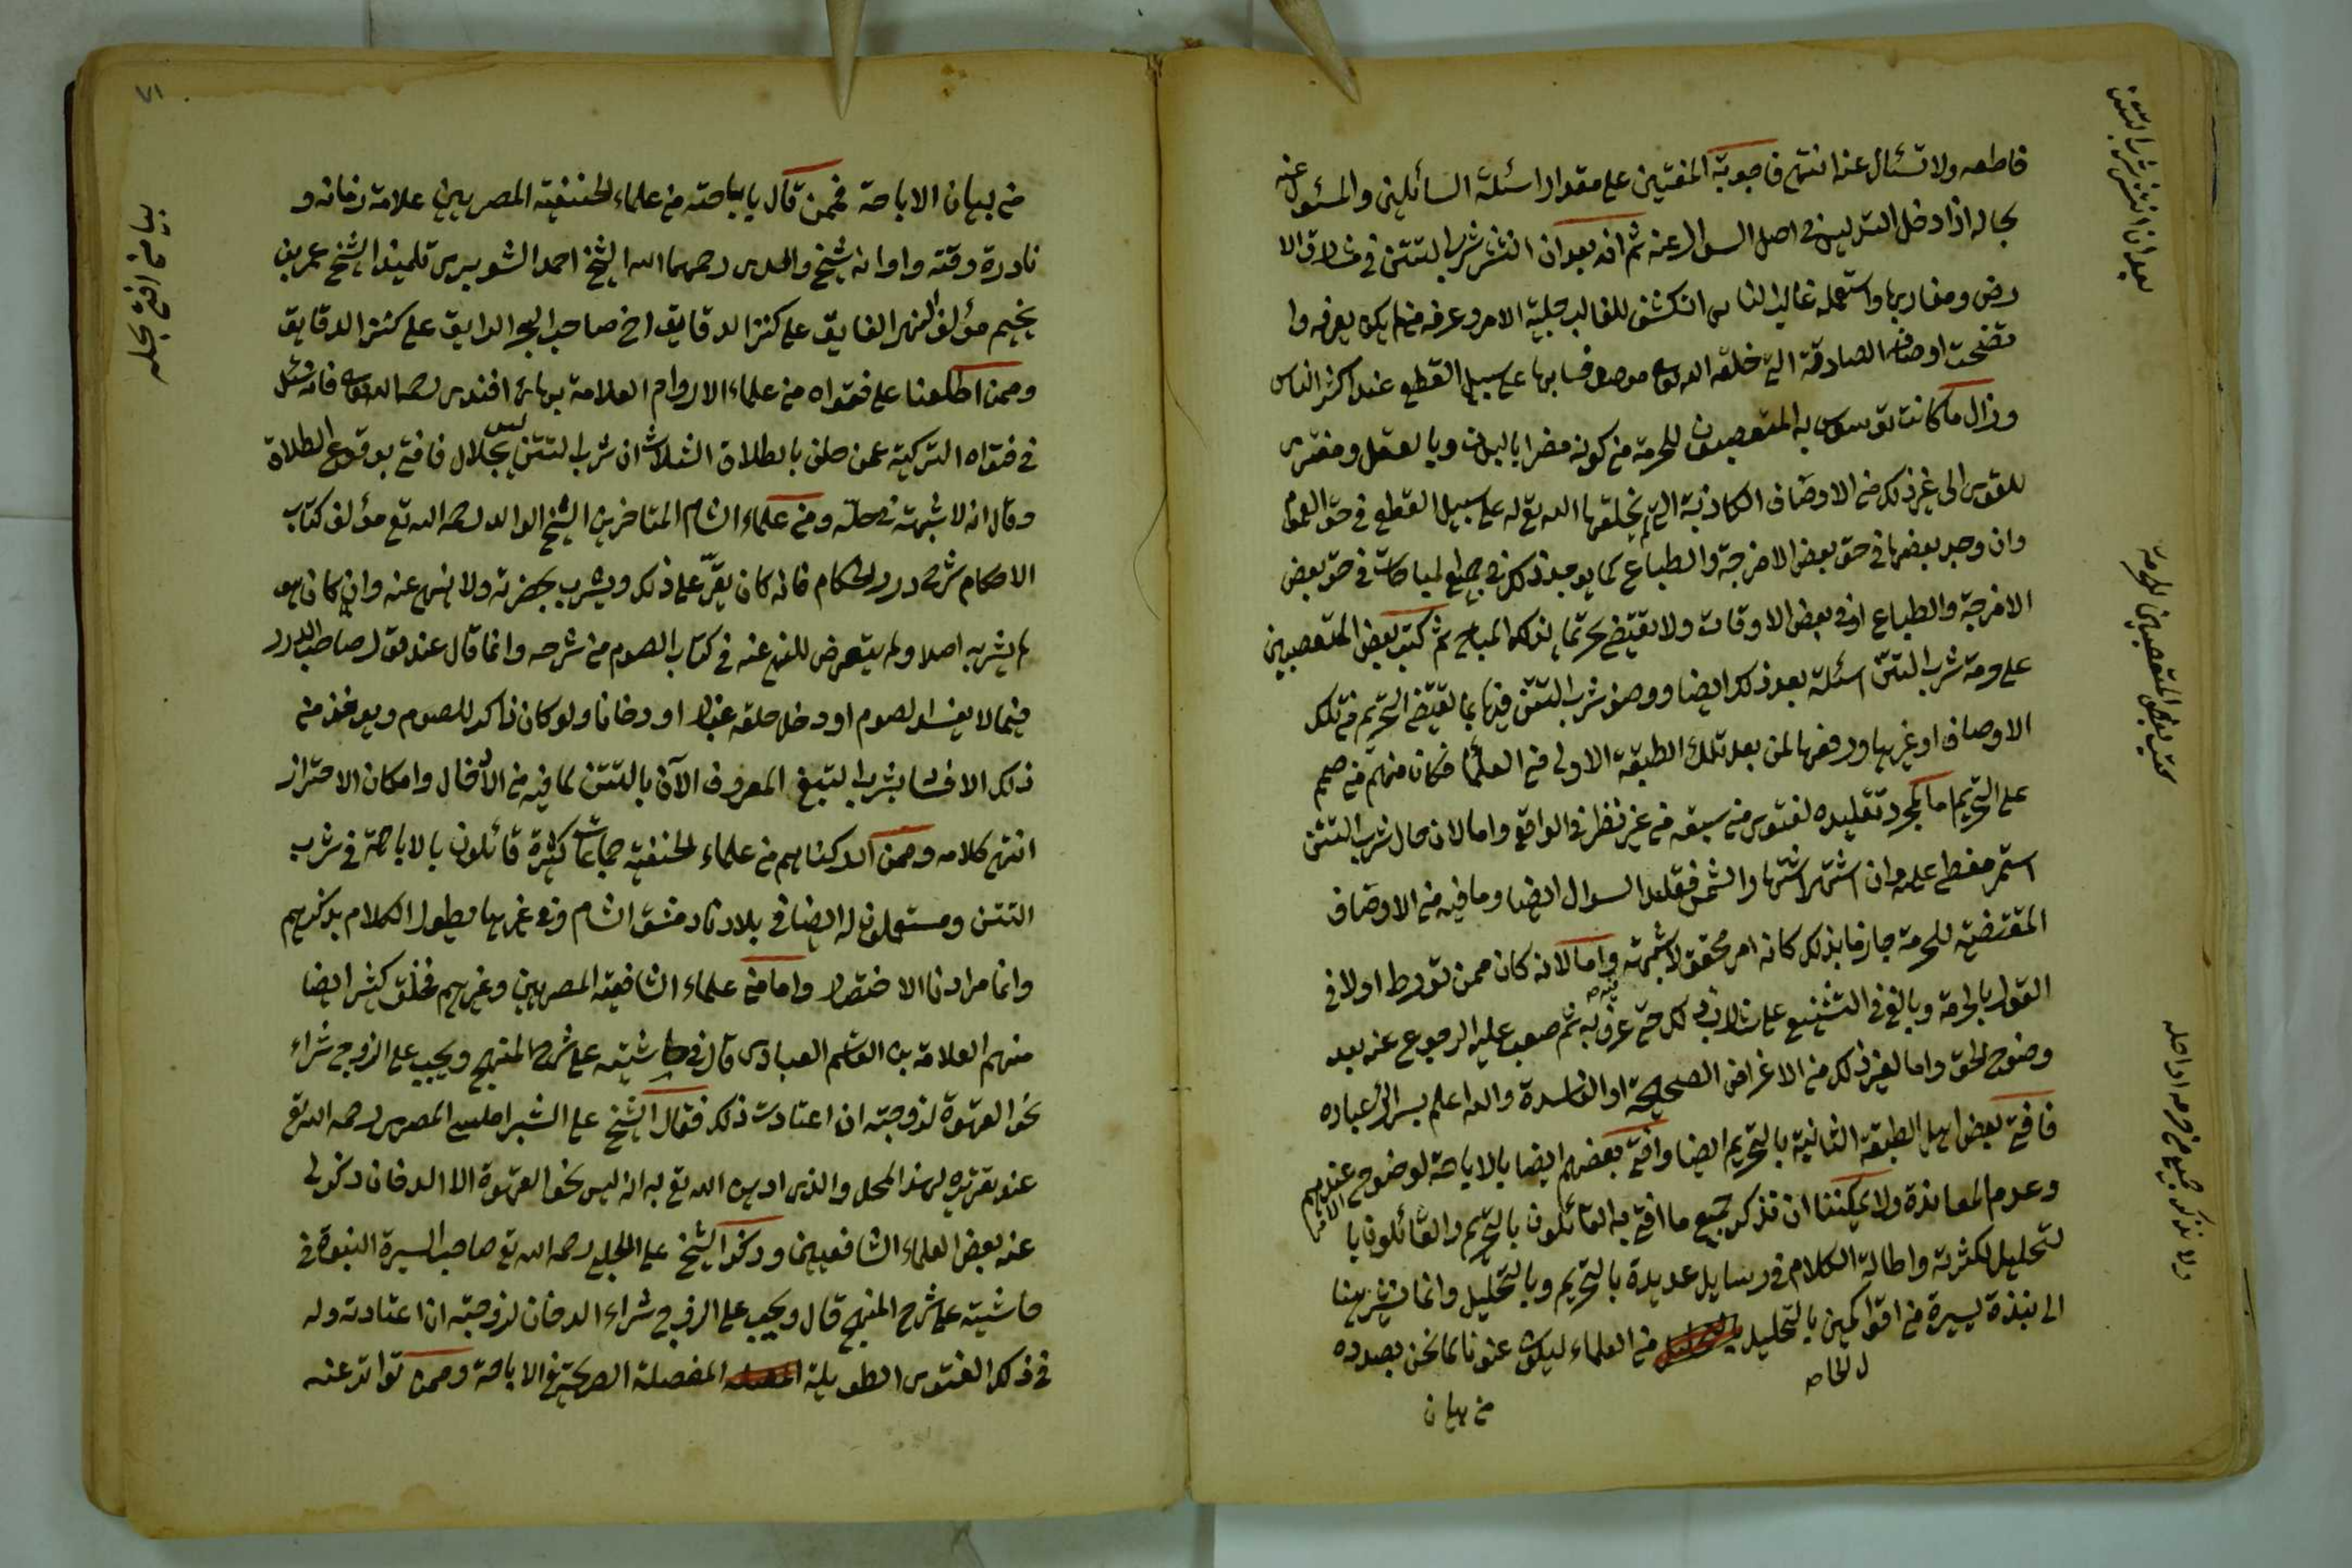 فاطعه ولا تسئال عنه انتهى فاجوبة المفتين على مقدار اسئلة السائلين والمسئول عنه
بحاله اذا دخل التدليس في اصل السوال عنه ثم انه بعد ان انتشر شرب التتن في مشارق الا
رض ومغاربها واستعمله غالب الناس انكشف للغالب جلية الامر وعرفه من لم يكن يعرفه وا
تضحت اوصافه الصادقة التي خلقه الله تعالى موصوفا بها على سبيل القطع عند اكثر الناس
وزال ما كانت توسوس به المتعصبون للحرمة من كونه مضرا بالبدن وبالعقل ومفترى
للقوى الى غير ذلك من الاوصاف الكاذبة التي لم يخلقها الله تع له على سبيل القطع في حق العموم
وان وجد بعضها في حق بعض الامزجة والطباع كما يوجد ذلك في جميع المباحات في حق بعض
الامزجة والطباع او في بعض الاوقات ولا يقتضي حرمتها لذلك المباح ثم كتب بعض المتعصبين
على حرمة شرب التتن اسئلة بعد ذلك ايضا ووصف شرب التتن فيها بما يقتضي التحريم من تلك
الاوصاف او غيرها ورفعها لمن بعد تلك الطبقة الاولى من العلماء فكان منهم من صمم
على التحريم اما بمجرد تقليده لفتوى من سبقه من غير نظر في الواقع واما لان حال شرب التتن
استمر مغطى عليه وان اشتهر اشتهار الشمس فقلد السوال ايضا وما فيه من الاوصاف
المقتضية للحرمة جازما بذلك كانه امر محقق لا شبهة فيه واما لانه كان ممن تورط اولا في
القول بالحرمة وبالغ في التشنيع على شاربه لذلك حتى عرف به ثم صعب عليه الرجوع عنه بعد
وضوح الحق واما لغير ذلك من الاغراض الصحيحة او الفاسدة والله اعلم بسرائر عباده
فافتى بعض اهل الطبقة الثانية بالتحريم ايضا وافتى بعضهم ايضا بالاباحة لوضوح الامر عندهم
وعدم المعاندة ولا يمكننا ان نذكر جميع ما افتى به القائلون بالتحريم والقائلون با
لتحليل لكثرته واطالة الكلام في رسايل عديدة بالتحريم وبالتحليل وانما نشير هنا
الى نبذة يسيرة من اقوال المفتين بالتحليل من العلماء ليكون عنوانا لما نحن بصدده
من بيان
بعد ان انتشر شرب التتن
كتب بعض المتعصبين للحرمة
ولا نذكر جميع من حرمه او احله
٧١
من بيان الاباحة فممن قال باباحته من علماء الحنفية المصريين علامة زمانه و
نادرة وقته واوانه شيخ والدى رحمهما الله الشيخ احمد الشوبرى تلميذ الشيخ عمر بن
نجيم مؤلف النهر الفايق على كنز الدقايق اخ صاحب البحر الرايق على كنز الدقايق
وممن اطلعنا على فتواه من علماء الاروام العلامة بهائى افندى رحمه الله تعالى فانه سئل
في فتواه التركية عمن حلف بالطلاق الثلاث ان شرب التتن ليس بحلال فافتى بوقوع الطلاق
وقال انه لا شبهة في حله ومن علماء الشام المتاخرين الشيخ الوالد رحمه الله تع مؤلف كتاب
الاحكام شرح درر الحكام فانه كان يقر على ذلك ويشرب بحضرته ولا ينهى عنه وان كان هو
لم يشربه اصلا ولم يتعرض للنهي عنه في كتاب الصوم من شرحه وانما قال عند قول صاحب الدرر
فيما لا يفسد الصوم او دخل حلقه غبار او دخانا ولو كان ذاكر للصوم ويؤخذ من
ذلك الافساد بشرب التبغ المعروف الآن بالتتن لما فيه من الأدخال وامكان الاحتراز
انتهى كلامه وممن ادركناهم من علماء الحنفية جماعات كثيرة قائلون بالاباحة في شرب
التتن ومستعملون له ايضا في بلادنا دمشق الشام وفي غيرها ويطول الكلام بذكرهم
وانما مرادنا الاختصار واما من علماء الشافعية المصريين وغيرهم فخلق كثير ايضا
منهم العلامة بن القاسم العبادى قال في حاشيته على شرح المنهج ويجب على الزوج شراء
نحو القهوة لزوجته ان اعتادت ذلك فقال الشيخ على الشبراملسى المصرى رحمه الله تع
عند تقريره لهذا المحل والذى ادين الله تع به انه ليس نحو القهوة الا الدخان ذكر لى
عنه بعض العلماء الشافعيين وذكر الشيخ على الحلبى رحمه الله تع صاحب السيرة النبوية في
حاشيته على شرح المنهج قال ويجب على الزوج شراء الدخان لزوجته ان اعتادته وله
في ذلك الفتوى الطويلة المفصلة الصريحة في الاباحة وممن تواتر عنه
بيان من افتى بحله